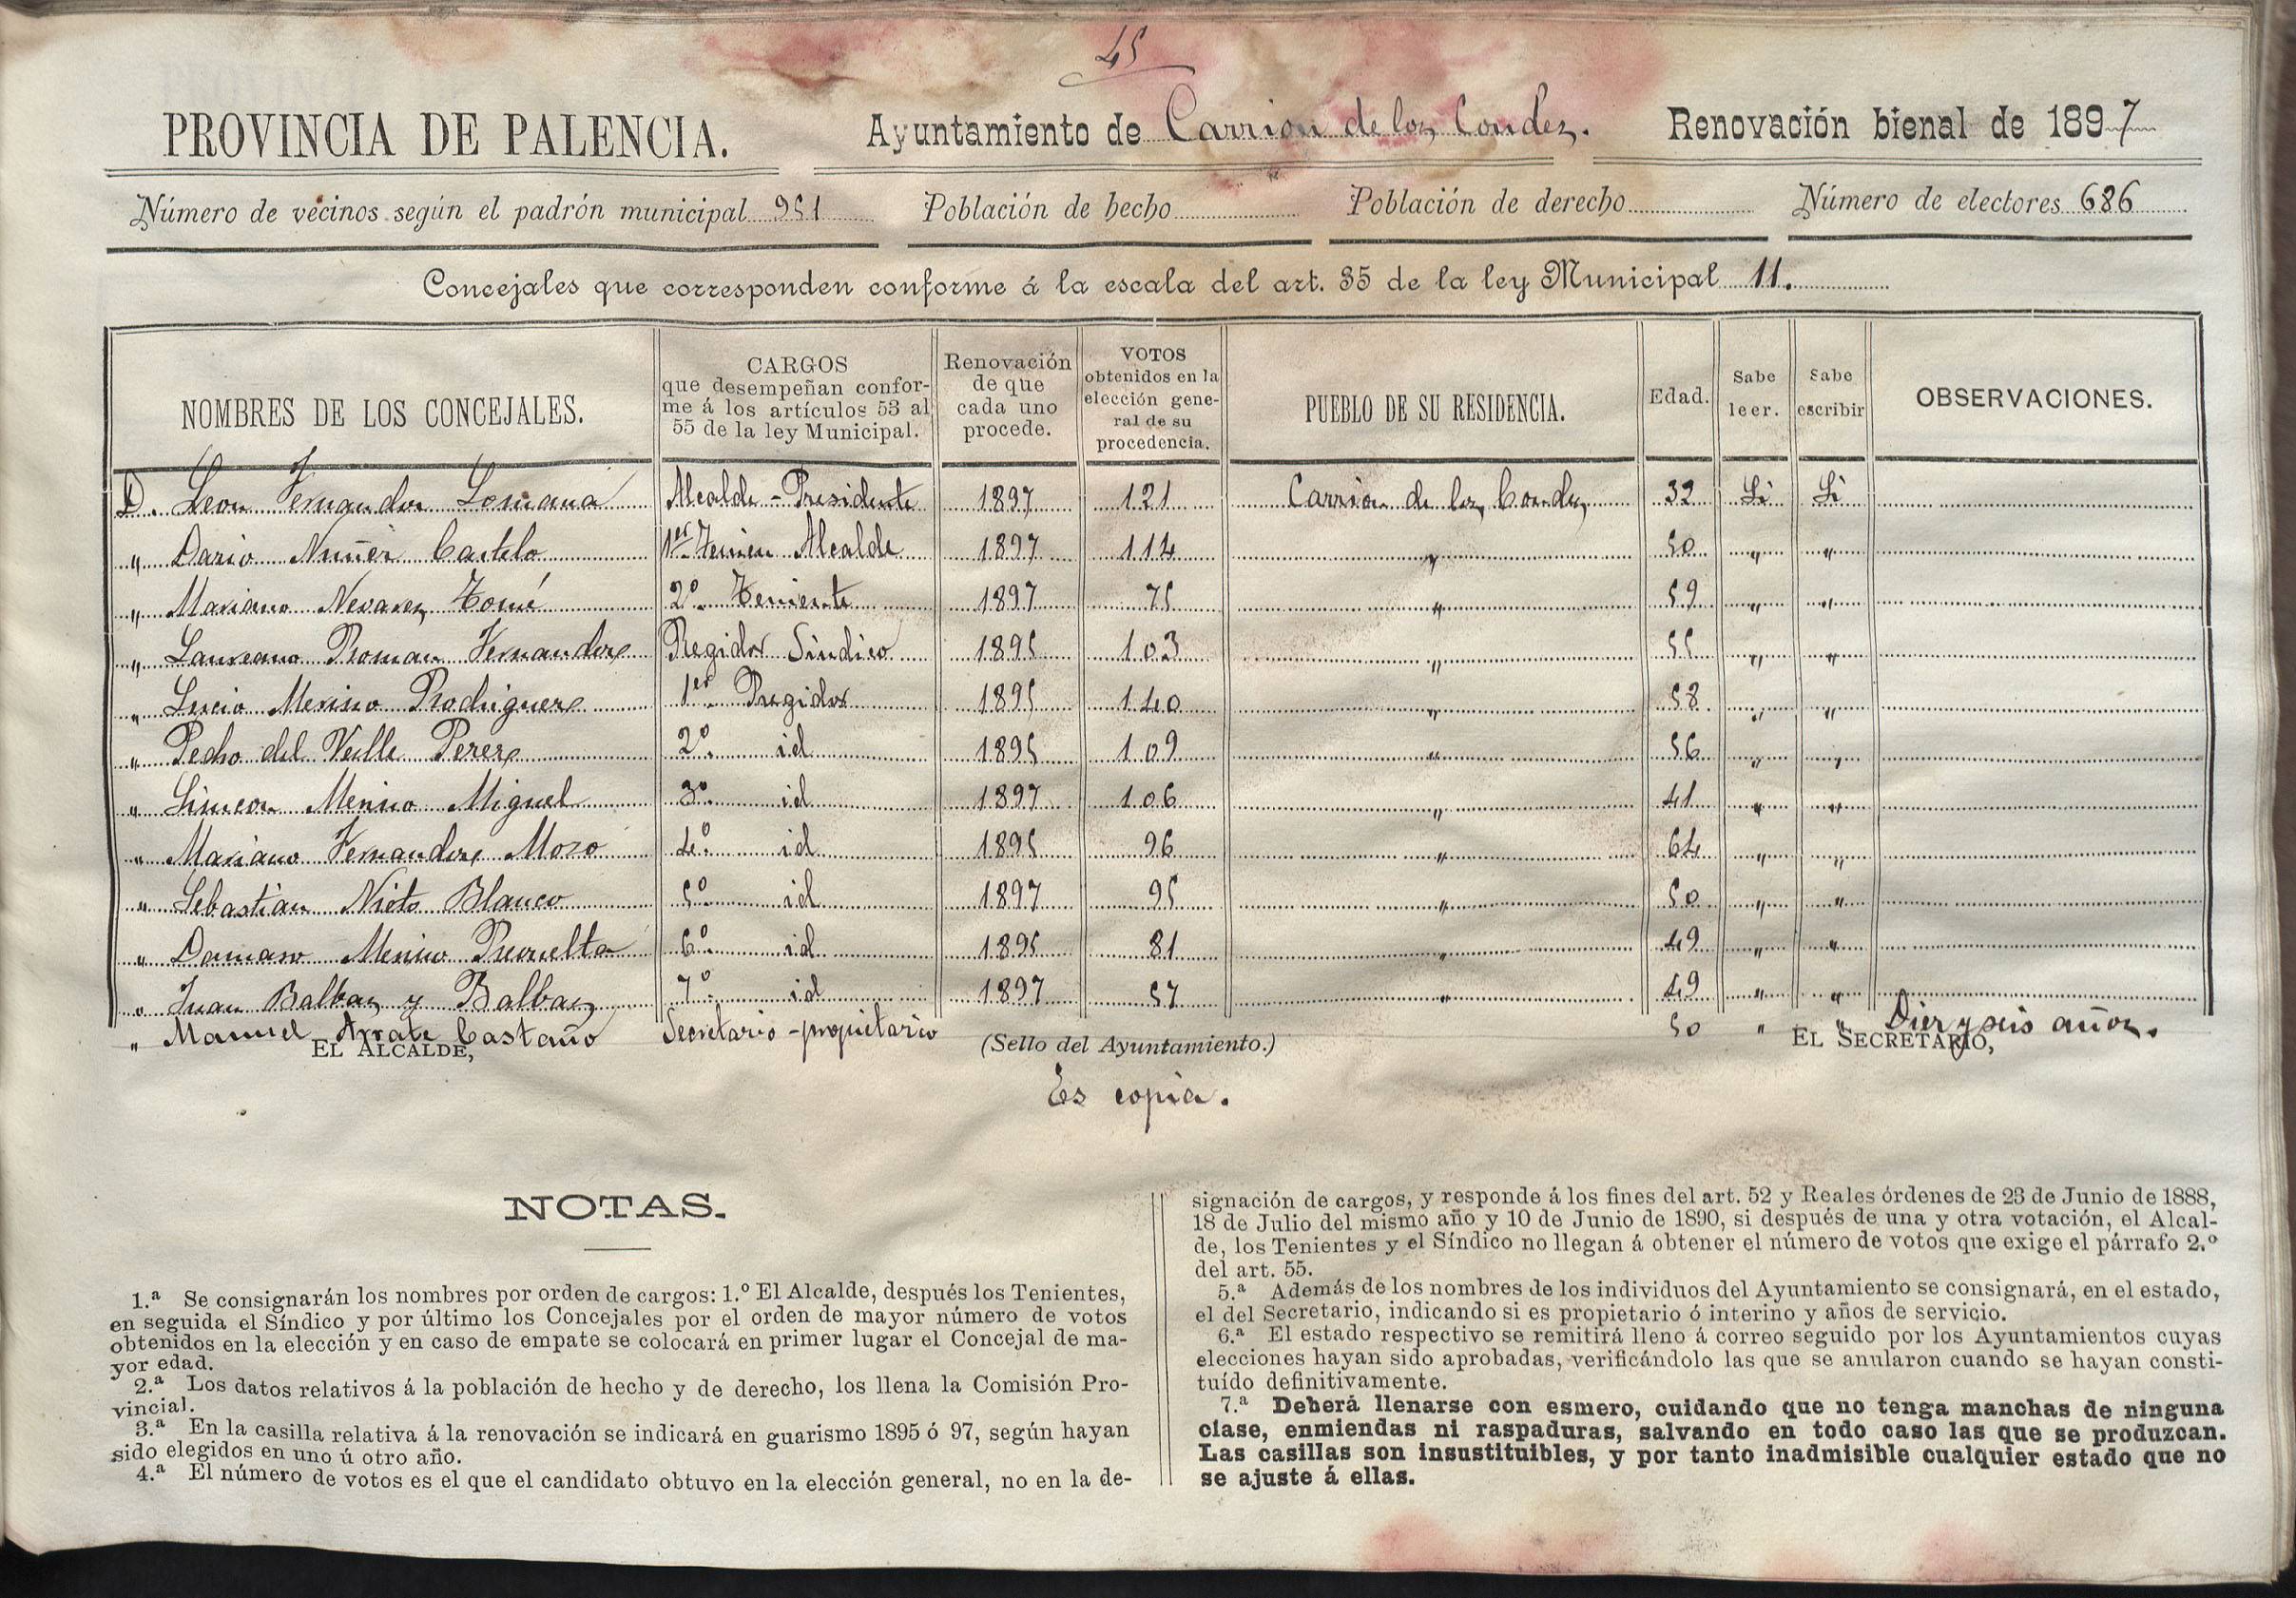 45
PROVINCIA DE PALENCIA. Ayuntamiento de Carrion de los Condes. Renovación bienal de 1897
Número de vecinos según el padrón municipal 951 Población de hecho Población de derecho Número de electores 686
Concejales que corresponden conforme á la escala del art. 35 de la ley Municipal 11.
NOMBRES DE LOS CONCEJALES. CARGOS que desempeñan conforme á los artículos 53 al 55 de la ley Municipal. Renovación de que cada uno procede. VOTOS obtenidos en la elección general de su procedencia. PUEBLO DE SU RESIDENCIA. Edad. Sabe leer. Sabe escribir OBSERVACIONES.
D. Leon Fernandez Lomana Alcalde-Presidente 1897 121 Carrion de los Condes 32 Si Si
" Dario Nuñez Castelo 1er Tenien Alcalde 1897 114 " 50 " "
" Mariano Nevares Tomé 2º Teniente 1897 75 " 59 " "
" Laureano Roman Fernandez Regidor Sindico 1895 103 " 55 " "
" Lucio Merino Rodriguez 1er Regidor 1895 140 " 58 " "
" Pedro del Valle Perez 2º id 1895 109 " 56 " "
" Simeon Merino Miguel 3º id 1897 106 " 41 " "
" Mariano Fernandez Mozo 4º id 1895 96 " 64 " "
" Sebastian Nieto Blanco 5º id 1897 95 " 50 " "
" Damaso Merino 6º id 1895 81 " 49 " "
" Juan Balbas y Balbas 7º id 1897 57 " 49 " "
" Manuel Arrate Castaño Secretario-propietario 50 " " Diez y seis años.
EL ALCALDE, (Sello del Ayuntamiento.) EL SECRETARIO,
Es copia.
NOTAS.
1.ª Se consignarán los nombres por orden de cargos: 1.º El Alcalde, después los Tenientes,
en seguida el Síndico y por último los Concejales por el orden de mayor número de votos
obtenidos en la elección y en caso de empate se colocará en primer lugar el Concejal de ma-
yor edad.
2.ª Los datos relativos á la población de hecho y de derecho, los llena la Comisión Pro-
vincial.
3.ª En la casilla relativa á la renovación se indicará en guarismo 1895 ó 97, según hayan
sido elegidos en uno ú otro año.
4.ª El número de votos es el que el candidato obtuvo en la elección general, no en la de-
signación de cargos, y responde á los fines del art. 52 y Reales órdenes de 23 de Junio de 1888,
18 de Julio del mismo año y 10 de Junio de 1890, si después de una y otra votación, el Alcal-
de, los Tenientes y el Síndico no llegan á obtener el número de votos que exige el párrafo 2.º
del art. 55.
5.ª Además de los nombres de los individuos del Ayuntamiento se consignará, en el estado,
el del Secretario, indicando si es propietario ó interino y años de servicio.
6.ª El estado respectivo se remitirá lleno á correo seguido por los Ayuntamientos cuyas
elecciones hayan sido aprobadas, verificándolo las que se anularon cuando se hayan consti-
tuído definitivamente.
7.ª Deberá llenarse con esmero, cuidando que no tenga manchas de ninguna
clase, enmiendas ni raspaduras, salvando en todo caso las que se produzcan.
Las casillas son insustituibles, y por tanto inadmisible cualquier estado que no
se ajuste á ellas.